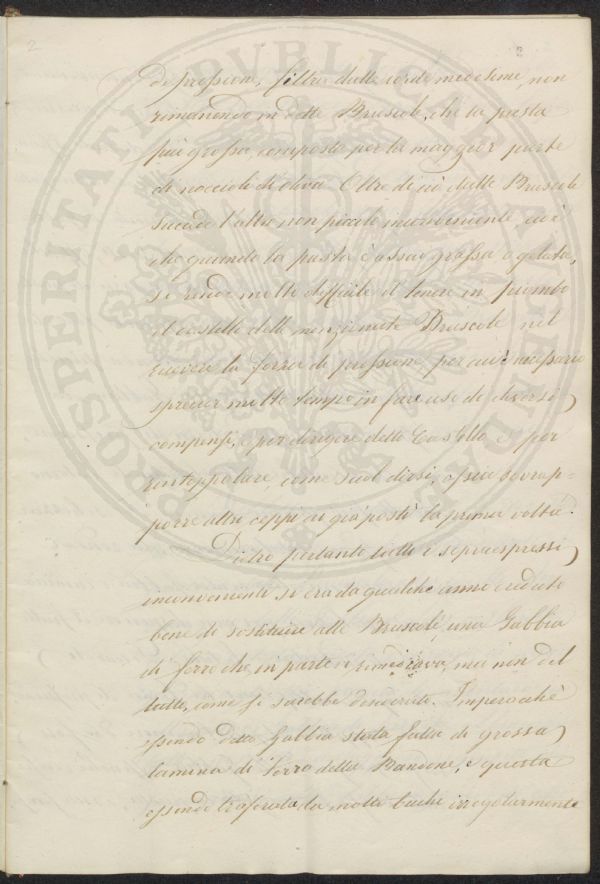 2
2
di pressione, filtra dalle corde medesime, non
rimanendo in dette Bruscole, che la pasta
più grossa composta per la maggior parte
di noccioli di oliva. Oltre di ciò dalle Bruscole
accade l'altro non piccolo inconveniente, cioè
che quando la pasta è assai grassa o gelata,
si rende molto difficile il tenere in piombo
il Castello delle menzionate Bruscole nel
ricevere la forza di pressione, per cui è necessario
sprecar molto tempo in fare uso di diversi
compensi, e per dirigere detto Castello, e per
rintoppolare, come suol dirsi, ossia sovrap=
porre altri ceppi ai già posti la prima volta.
Dietro pertanto tutti i sopraespressi
inconvenienti si era da qualche anno creduto
bene di sostituire alle Bruscole, una Gabbia
di ferro che in parte rimediava, ma non del
tutto, come si sarebbe desiderato. Imperocchè
essendo detta Gabbia stata fatta di grossa
lamina di Ferro detta Bandone, e questa
essendo traforata da molti buchi irregolarmente
PROSPERITATI PVBLICAE